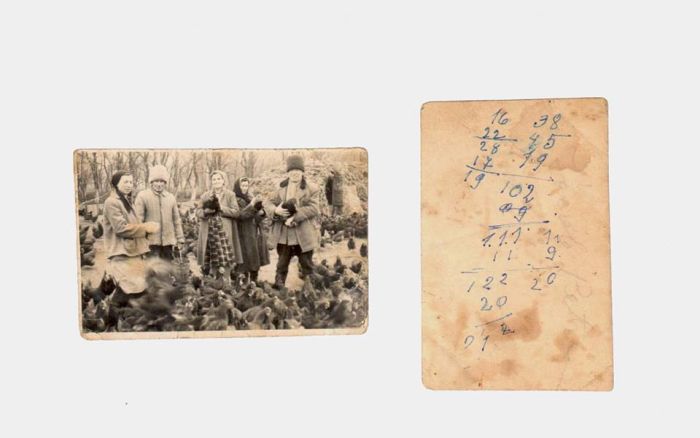 16 38
22 45
28 19
17
19 102
09
111 11
11 9
122 20
20